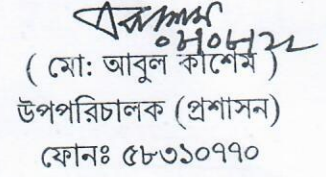 ( মো: আবুল কাশেম )
উপপরিচালক (প্রশাসন)
ফোনঃ ৫৮৩১০৭৭০